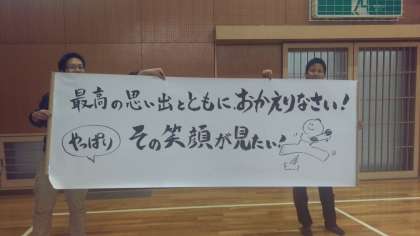 最高の思い出とともに、おかえりなさい！
やっぱり その笑顔が見たい！